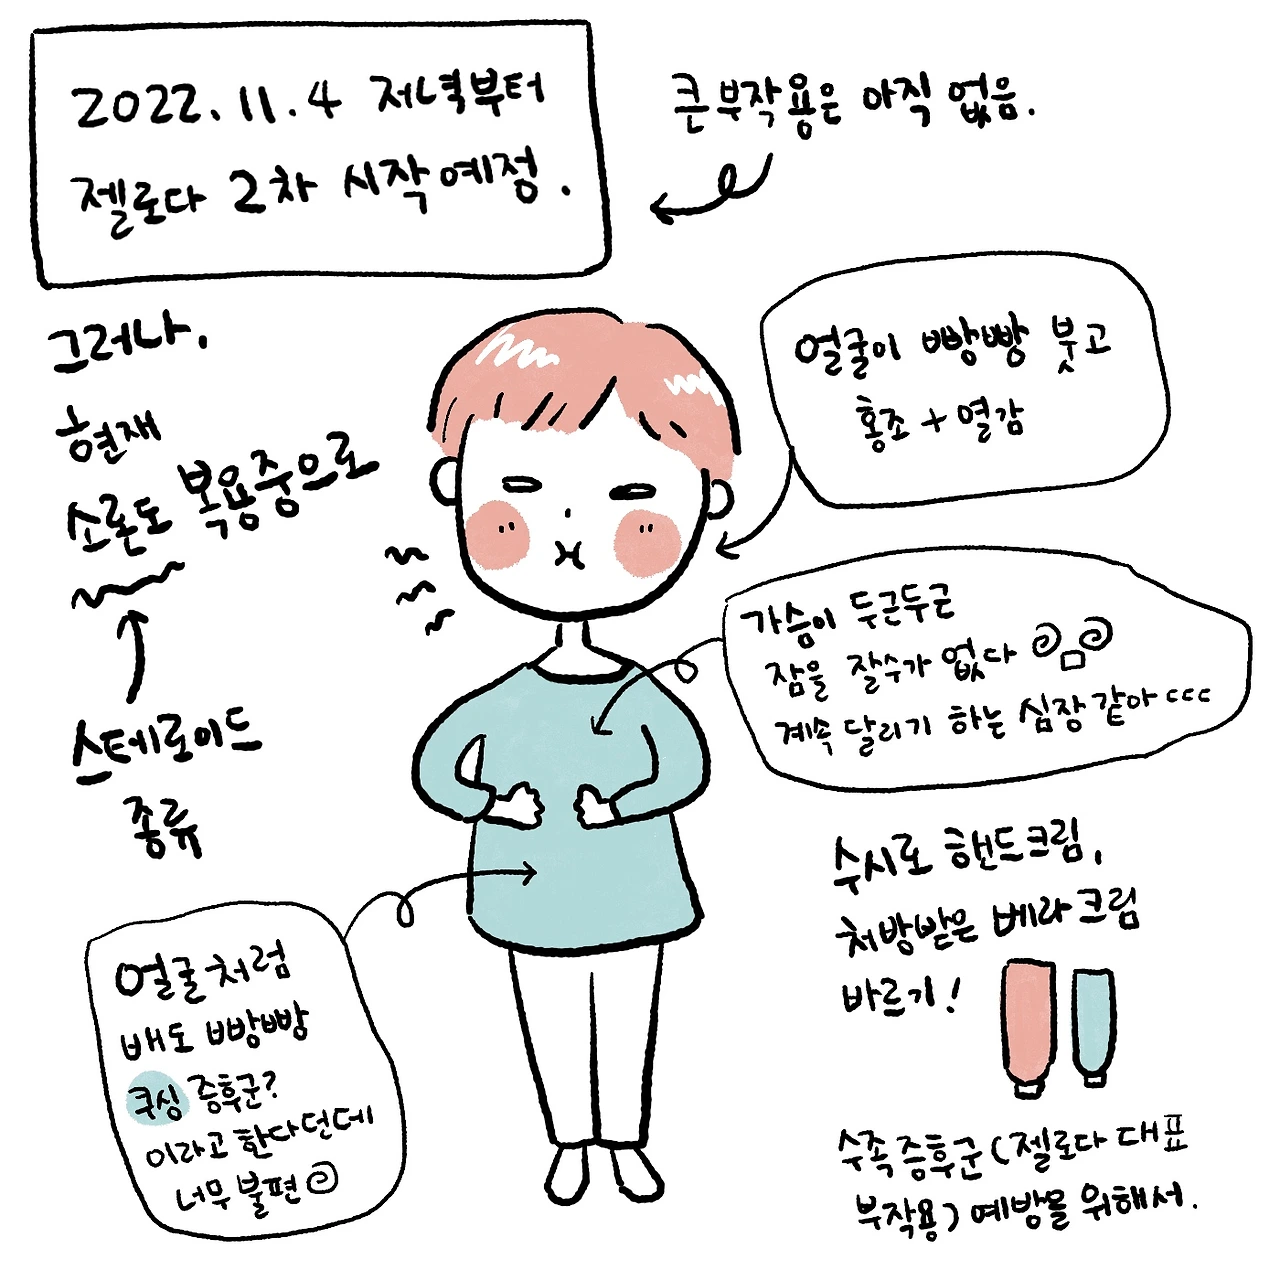 2022.11.4 저녁부터
젤로다 2차 시작예정.
큰 부작용은 아직 없음.
그러나.
현재
소론도 복용중으로
스테로이드
종류
얼굴이 빵빵 붓고
홍조 + 열감
가슴이 두근두근
잠을 잘수가 없다
계속 달리기 하는 심장같아 ㄷㄷㄷ
얼굴처럼
배도 빵빵
쿠싱 증후군?
이라고 한다던데
너무 불편
수시로 핸드크림,
처방받은 베라크림
바르기!
수족증후군 (젤로다 대표
부작용) 예방을 위해서.